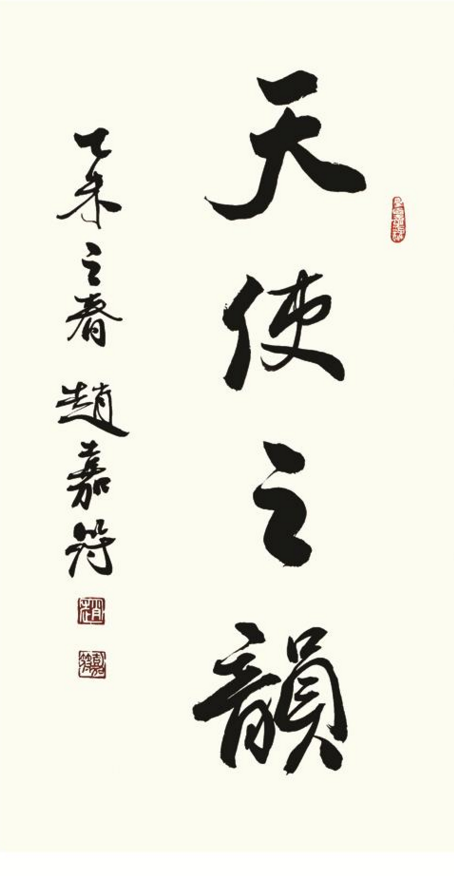 天使之韻
乙未之春 趙嘉符